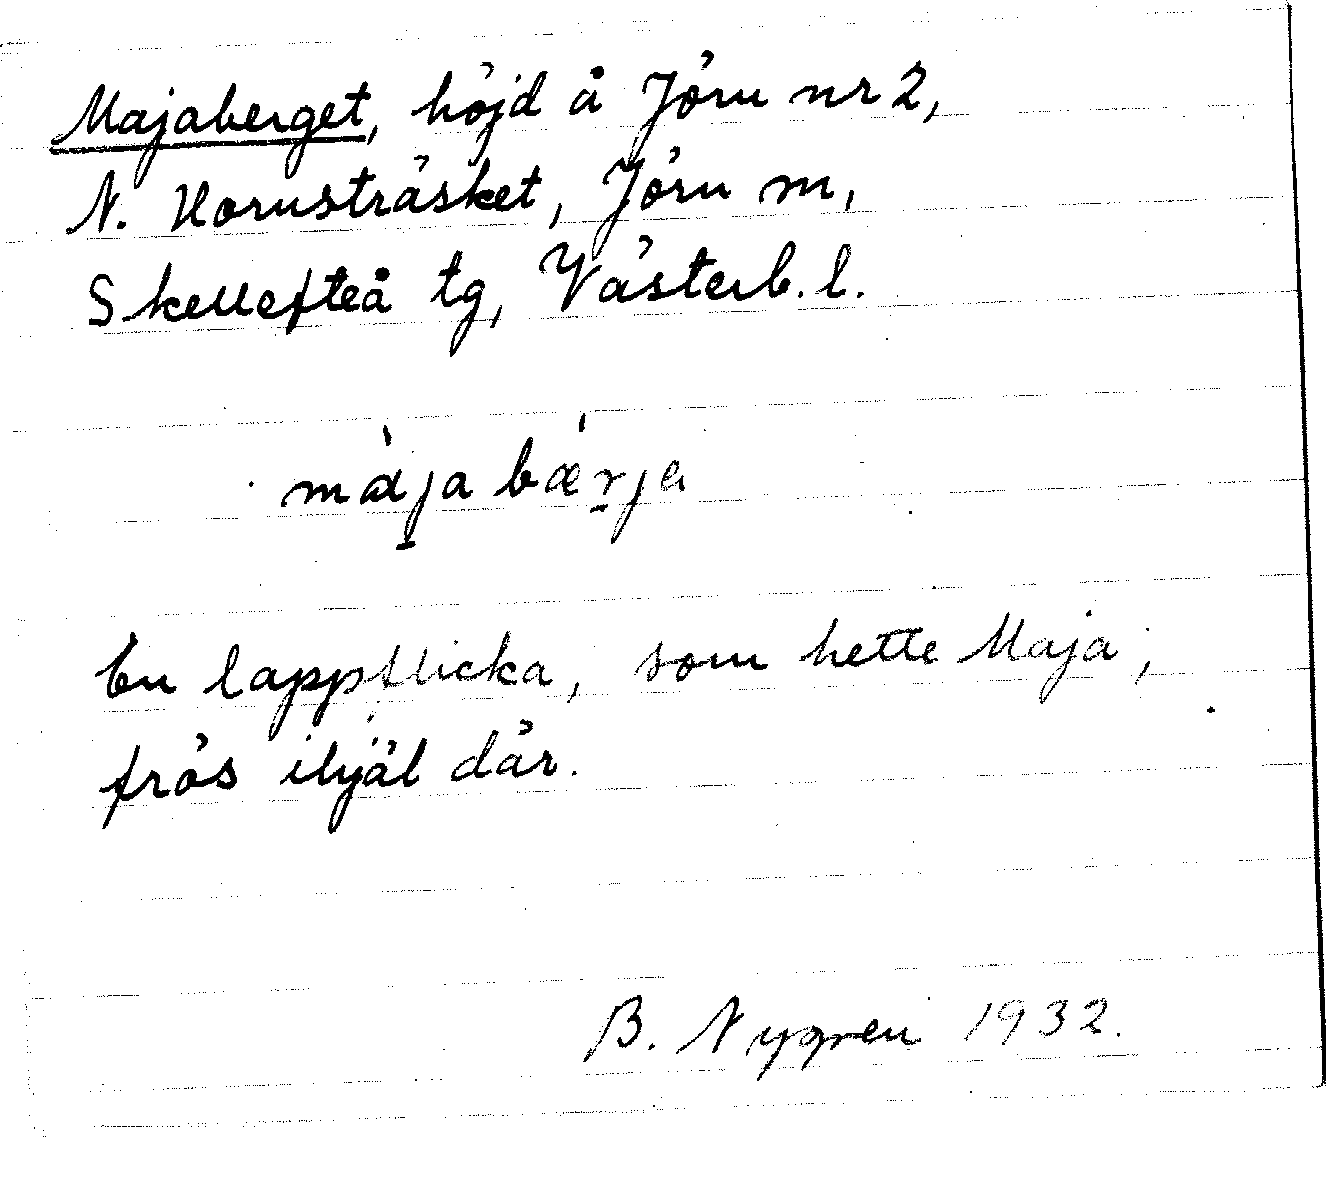 Majaberget, höjd å Jörn nr 2,
N. Hornsträsket, Jörn m,
Skellefteå tg, Västerb. l.
màja bærja
En lappflicka, som hette Maja,
frös ihjäl där.
B. Nygren 1932.